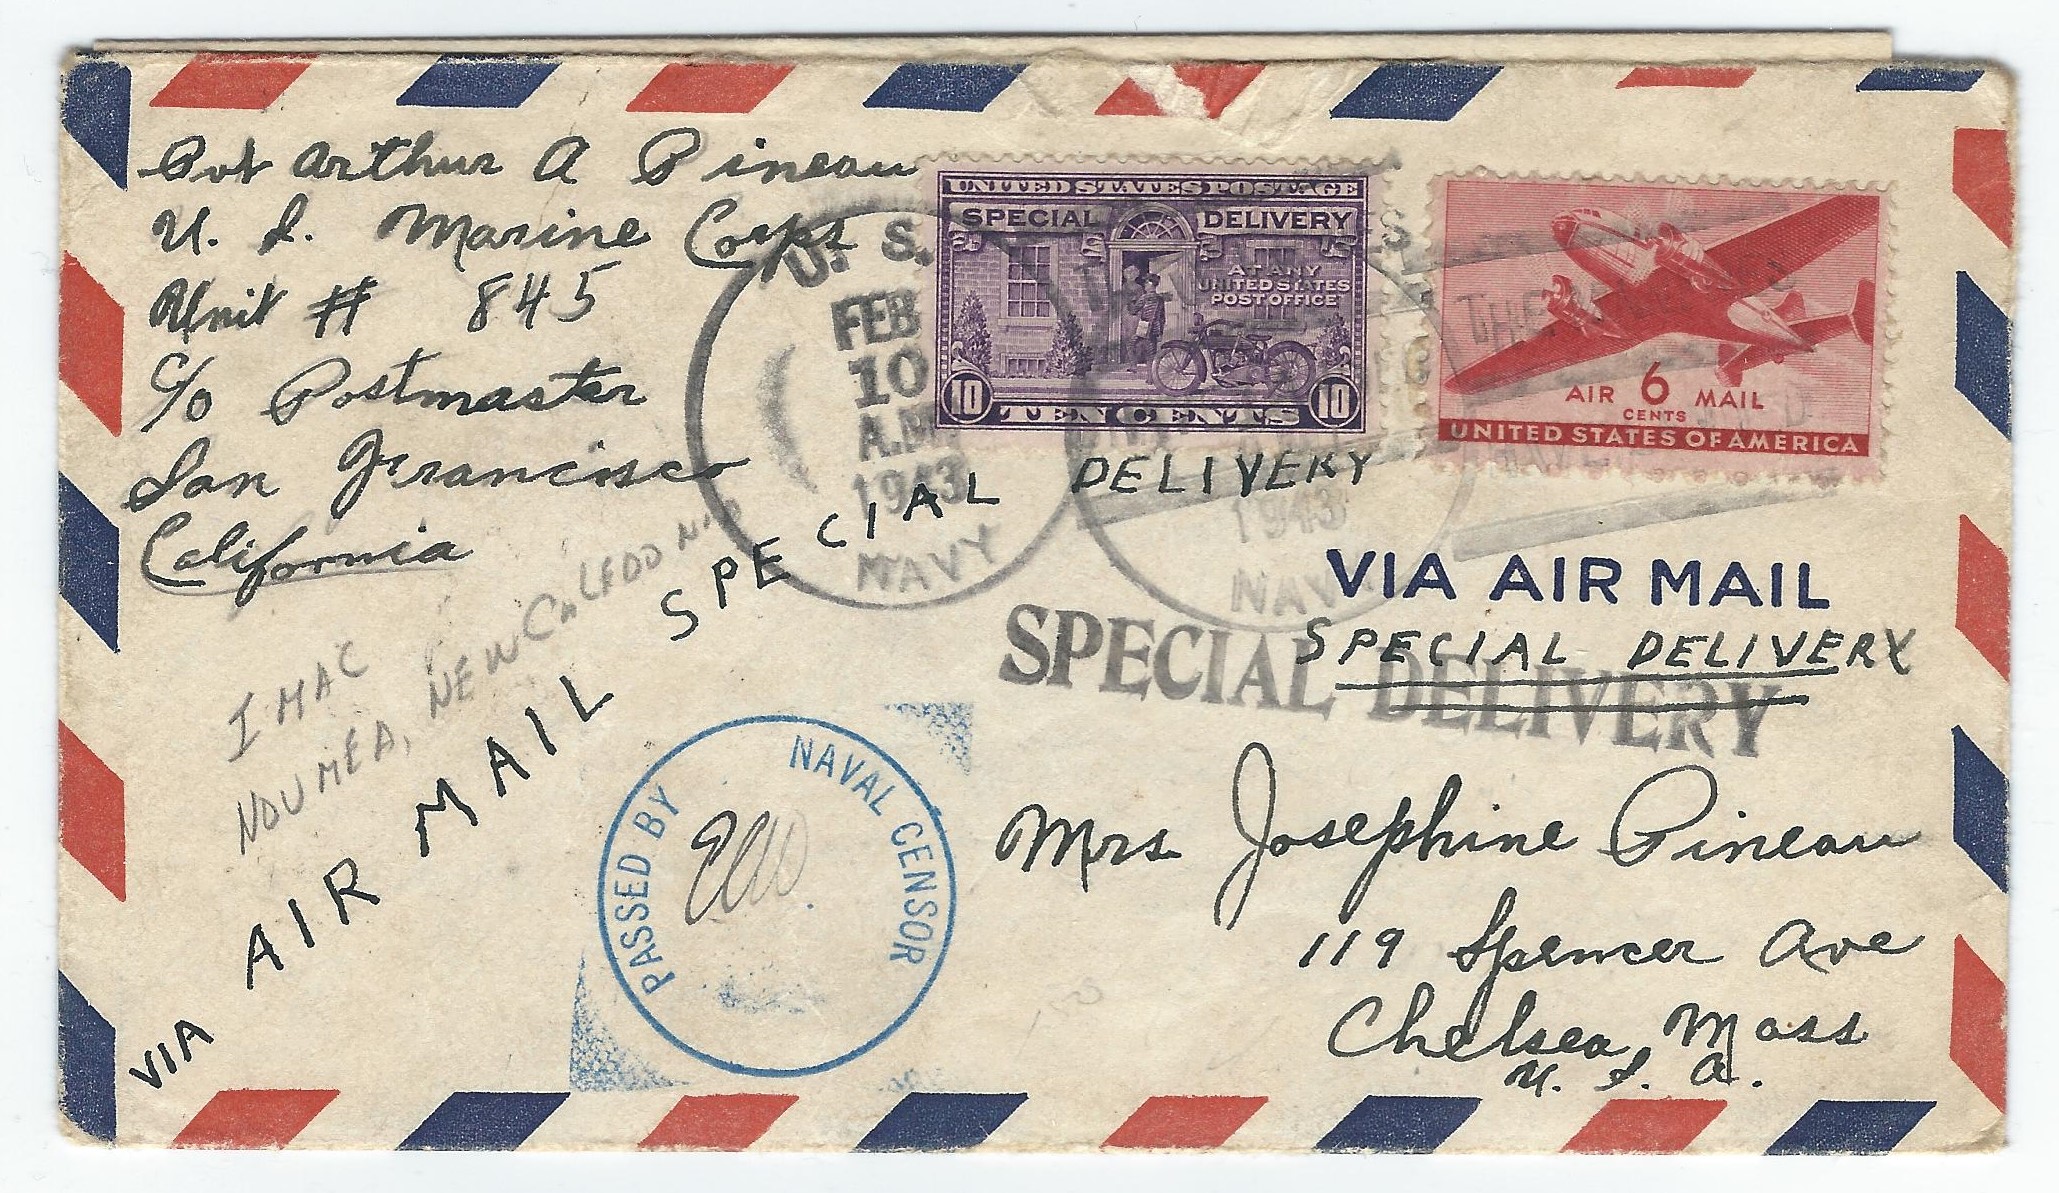 Pvt Arthur A Pineau
U. S. Marine Corps
Unit # 845
c/o Postmaster
San Francisco
California
I MAC
NOUMEA, NEW CALEDONIA
VIA AIR MAIL SPECIAL DELIVERY
U. S.
FEB
10
A.M.
1943
NAVY
UNITED STATES POSTAGE
SPECIAL DELIVERY
AT ANY
UNITED STATES
POST OFFICE
10 TEN CENTS 10
AIR 6 MAIL
CENTS
UNITED STATES OF AMERICA
1943
NAVY
VIA AIR MAIL
SPECIAL DELIVERY
SPECIAL DELIVERY
PASSED BY NAVAL CENSOR
Mrs. Josephine Pineau
119 Spencer Ave
Chelsea, Mass
U. S. A.